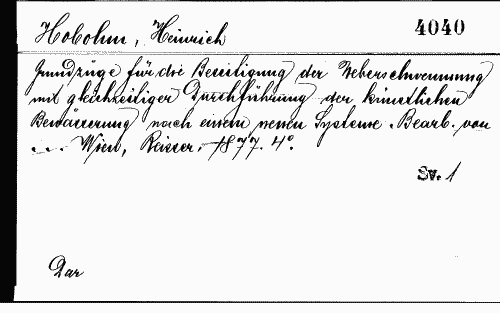 Hobohm, Heinrich 4040
Grundzüge für die Beseitigung der Ueberschwemmung
mit gleichzeitiger Durchführung der künstlichen
Bewässerung nach einem neuen Systeme. Bearb. von
... Wien, Reisser. 1877. 4°.
Sv. 1
Dar